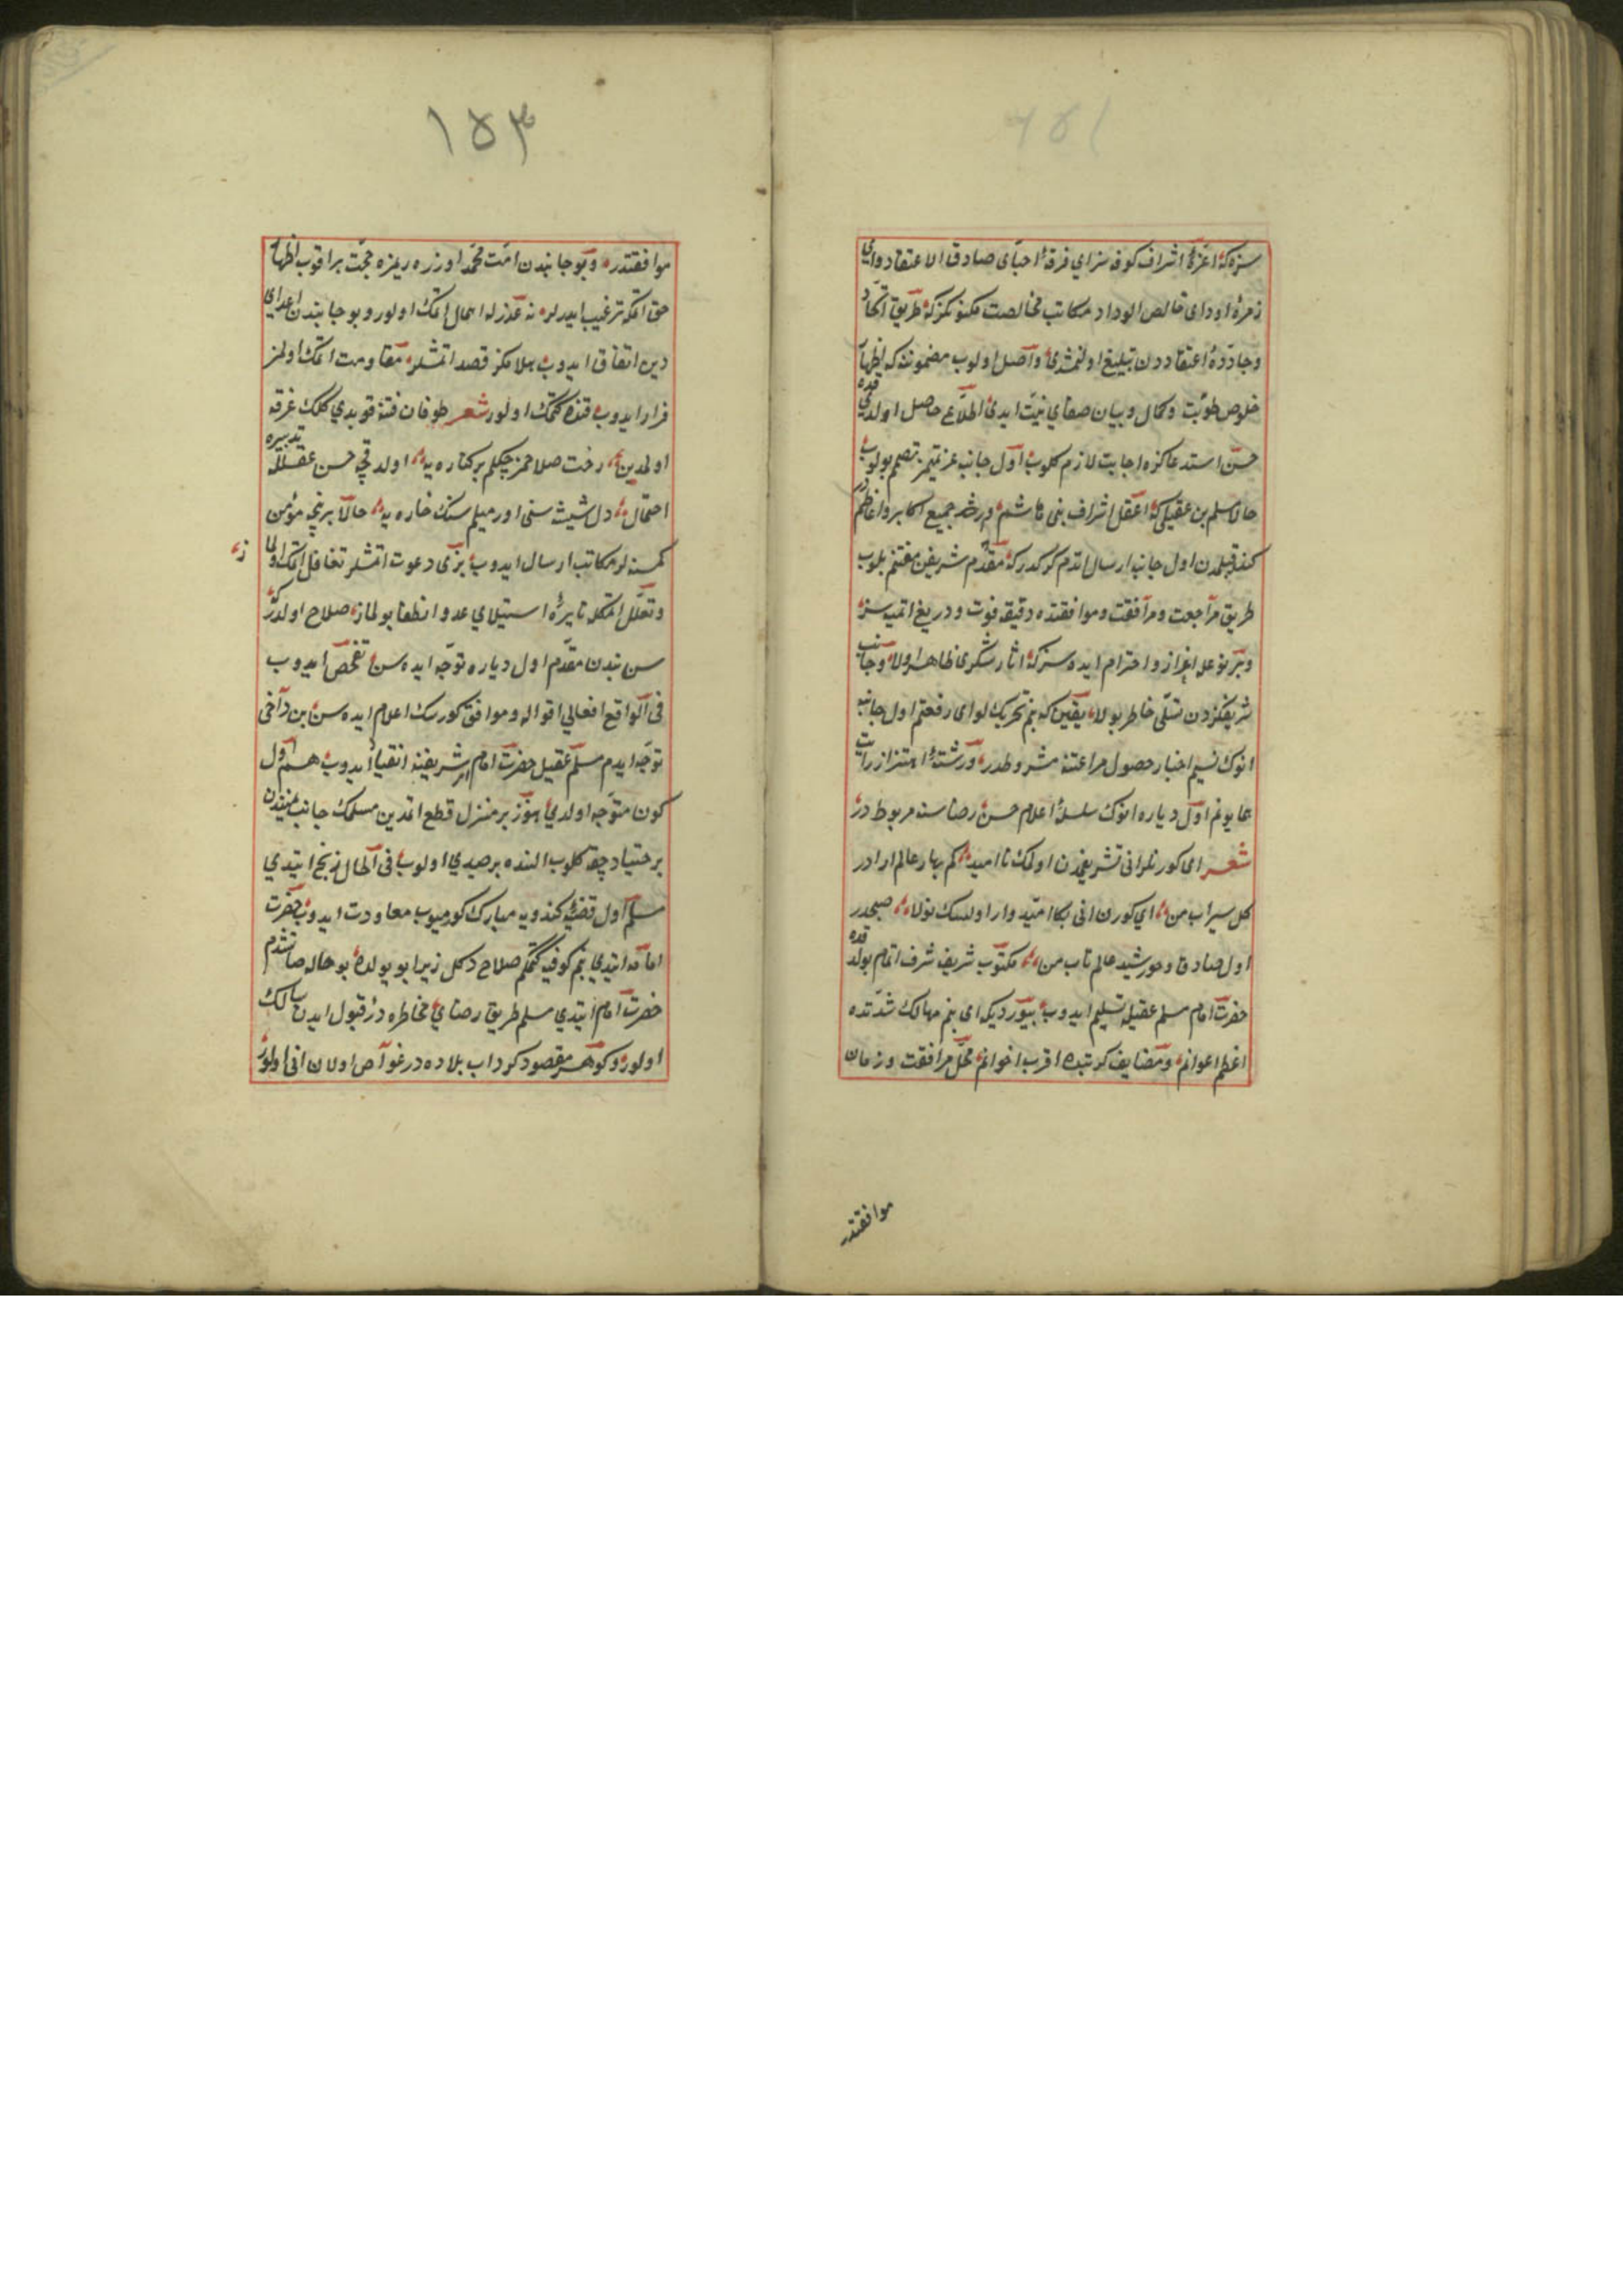 سزه كه اعزهٔ اشراف كوفه سز اي فرقهٔ احبای صادق الاعتقاد واي
زمرهٔ اودای خالص الوداد مكاتيب مخالصت مكنونكز كه طريق اتحاد
وجادهٔ اعتقاددن تبليغ اولنمشدی واصل اولوب مضموننده كه اظهار
خلوص طويت وكمال وبيان صفای نيت ايدی اطلاع حاصل اولدقده
حسن استدعاكزه اجابت لازم كلوب اول جانبه عزيمتمز تصميم بولوب
حالا مسلم بن عقيلی كه اعقل اشراف بنی هاشم وارشد جميع اكابر واعاظمدر
كندو قبلمدن اول جانبه ارسال اتدم كركدر كه مقدم شريفين مغتنم بلوب
طريق مراجعت ومرافقت وموافقتده دقيقه فوت ودريغ اتميه سز
وبر نوعله اعزاز واحترام ايده سز كه اثار شكری ظاهر اولا وجانب
شريفكزدن تسلی خاطر بولا يقين كه بنم تحريك لوای رفعتم اول جانبه
انوك نسيم اخبار حصول مراعتنه مشروطدر ورشتهٔ اهتزاز رايت
همايونم اول دياره انوك سلسلهٔ اعلام حسن رضاسنه مربوطدر
شعر ای كورنلر انی تشريفمدن اولمك نااميد كم بهار عالم ارادر
كل سيراب من اي كورن انی بكا اميدوار اولسك نولا صبحدر
اول صادق وخورشيد عالم تاب من مكتوب شريف شرف اتمام بولدقده
حضرت امام مسلم عقيله تسليم ايدوب بيورديكه ای بنم مهالك شدتده
اعظم اعوانم ومضايق كربتده اقرب اخوانم محل مرافقت وزمان
موافقتدر
١٥٣
موافقتدر وبو جانبدن امت محمد اوزره ريمزه حجت براقوب اظهار
حق اتمكه ترغيب ايدرلر نه عذرله اهمال اتمك اولور وبو جانبدن اعدای
دين اتفاق ايدوب هلاكمز قصد اتمشلر مقاومت اتمك اولمز
فرار ايدوب قنده كتمك اولور شعر طوفان فتنه قوپدي كلمك غرقه
اولمدين رخت صلاحمز چكلم بر كناره يه اولدقجه حسن عقلله تدبيره
احتمال دل شيشه سنی اورميلم سنك خاره يه حالا برنجه مؤمن
كمسنه لر مكاتب ارسال ايدوب بزی دعوت اتمشلر تغافل اتمك اولماز
وتعلل اتمكله نايرهٔ استيلاي عدو انطفا بولماز صلاح اولدر كه
سن بندن مقدم اول دياره توجه ايده سن تفحص ايدوب
فی الواقع افعالي اقواله وموافق كورسك اعلام ايده سن بن دخی
توجه ايدم مسلم عقيل حضرت امام امر شريفينه انقياد ايدوب هم اول
كون متوجه اولدي هنوز بر منزل قطع اتمدين مسلك جانب يمينندن
بر صياد چقه كلوب النده بر صيدي اولوب فی الحال ذبح ايتدي
مسلم اول قضيه كندويه مبارك كورميوب معاودت ايدوب حضرت
امامه ايتدي بنم كوفيه كتمكم صلاح دكل زيرا بو يولده بو حاله صاتشدم
حضرت امام ايتدي مسلم طريق رضاي مخاطره در قبول ايدن سالك
اولور وكوهر مقصود كرداب بلاده در غواص اولان انی اولور